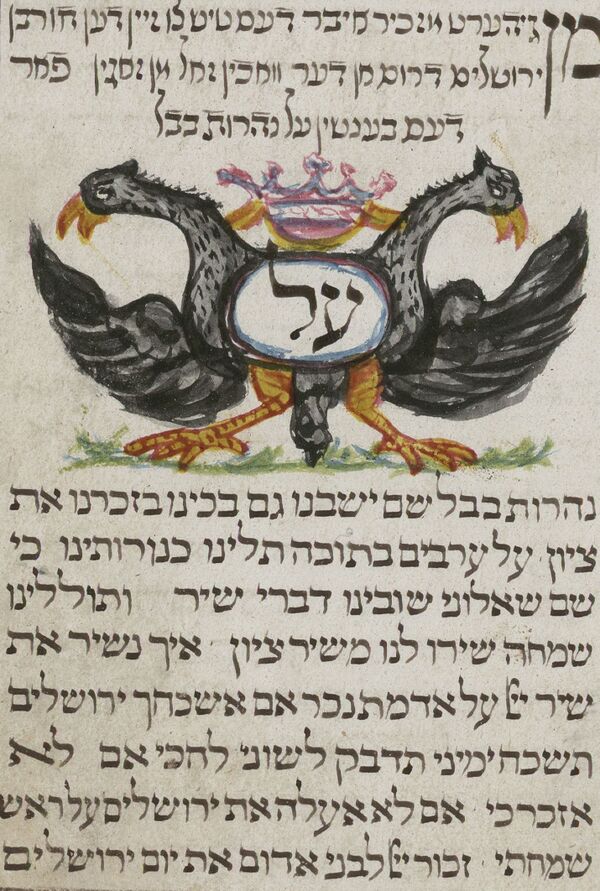 מן גיהערט מזכיר איבר דעם טיש צו זיין דען חורבן
ירושלים דרום מן דער וואכין זאל מן זאגין פאר
דעם בענטשין על נהרות בבל
על
נהרות בבל שם ישבנו גם בכינו בזכרנו את
ציון על ערבים בתוכה תלינו כנורותינו כי
שם שאלוני שובינו דברי שיר ותוללינו
שמחה שירו לנו משיר ציון איך נשיר את
שיר יי על אדמת נכר אם אשכחך ירושלים
תשכח ימיני תדבק לשוני לחכי אם לא
אזכרכי אם לא אעלה את ירושלים על ראש
שמחתי זכור יי לבני אדום את יום ירושלים